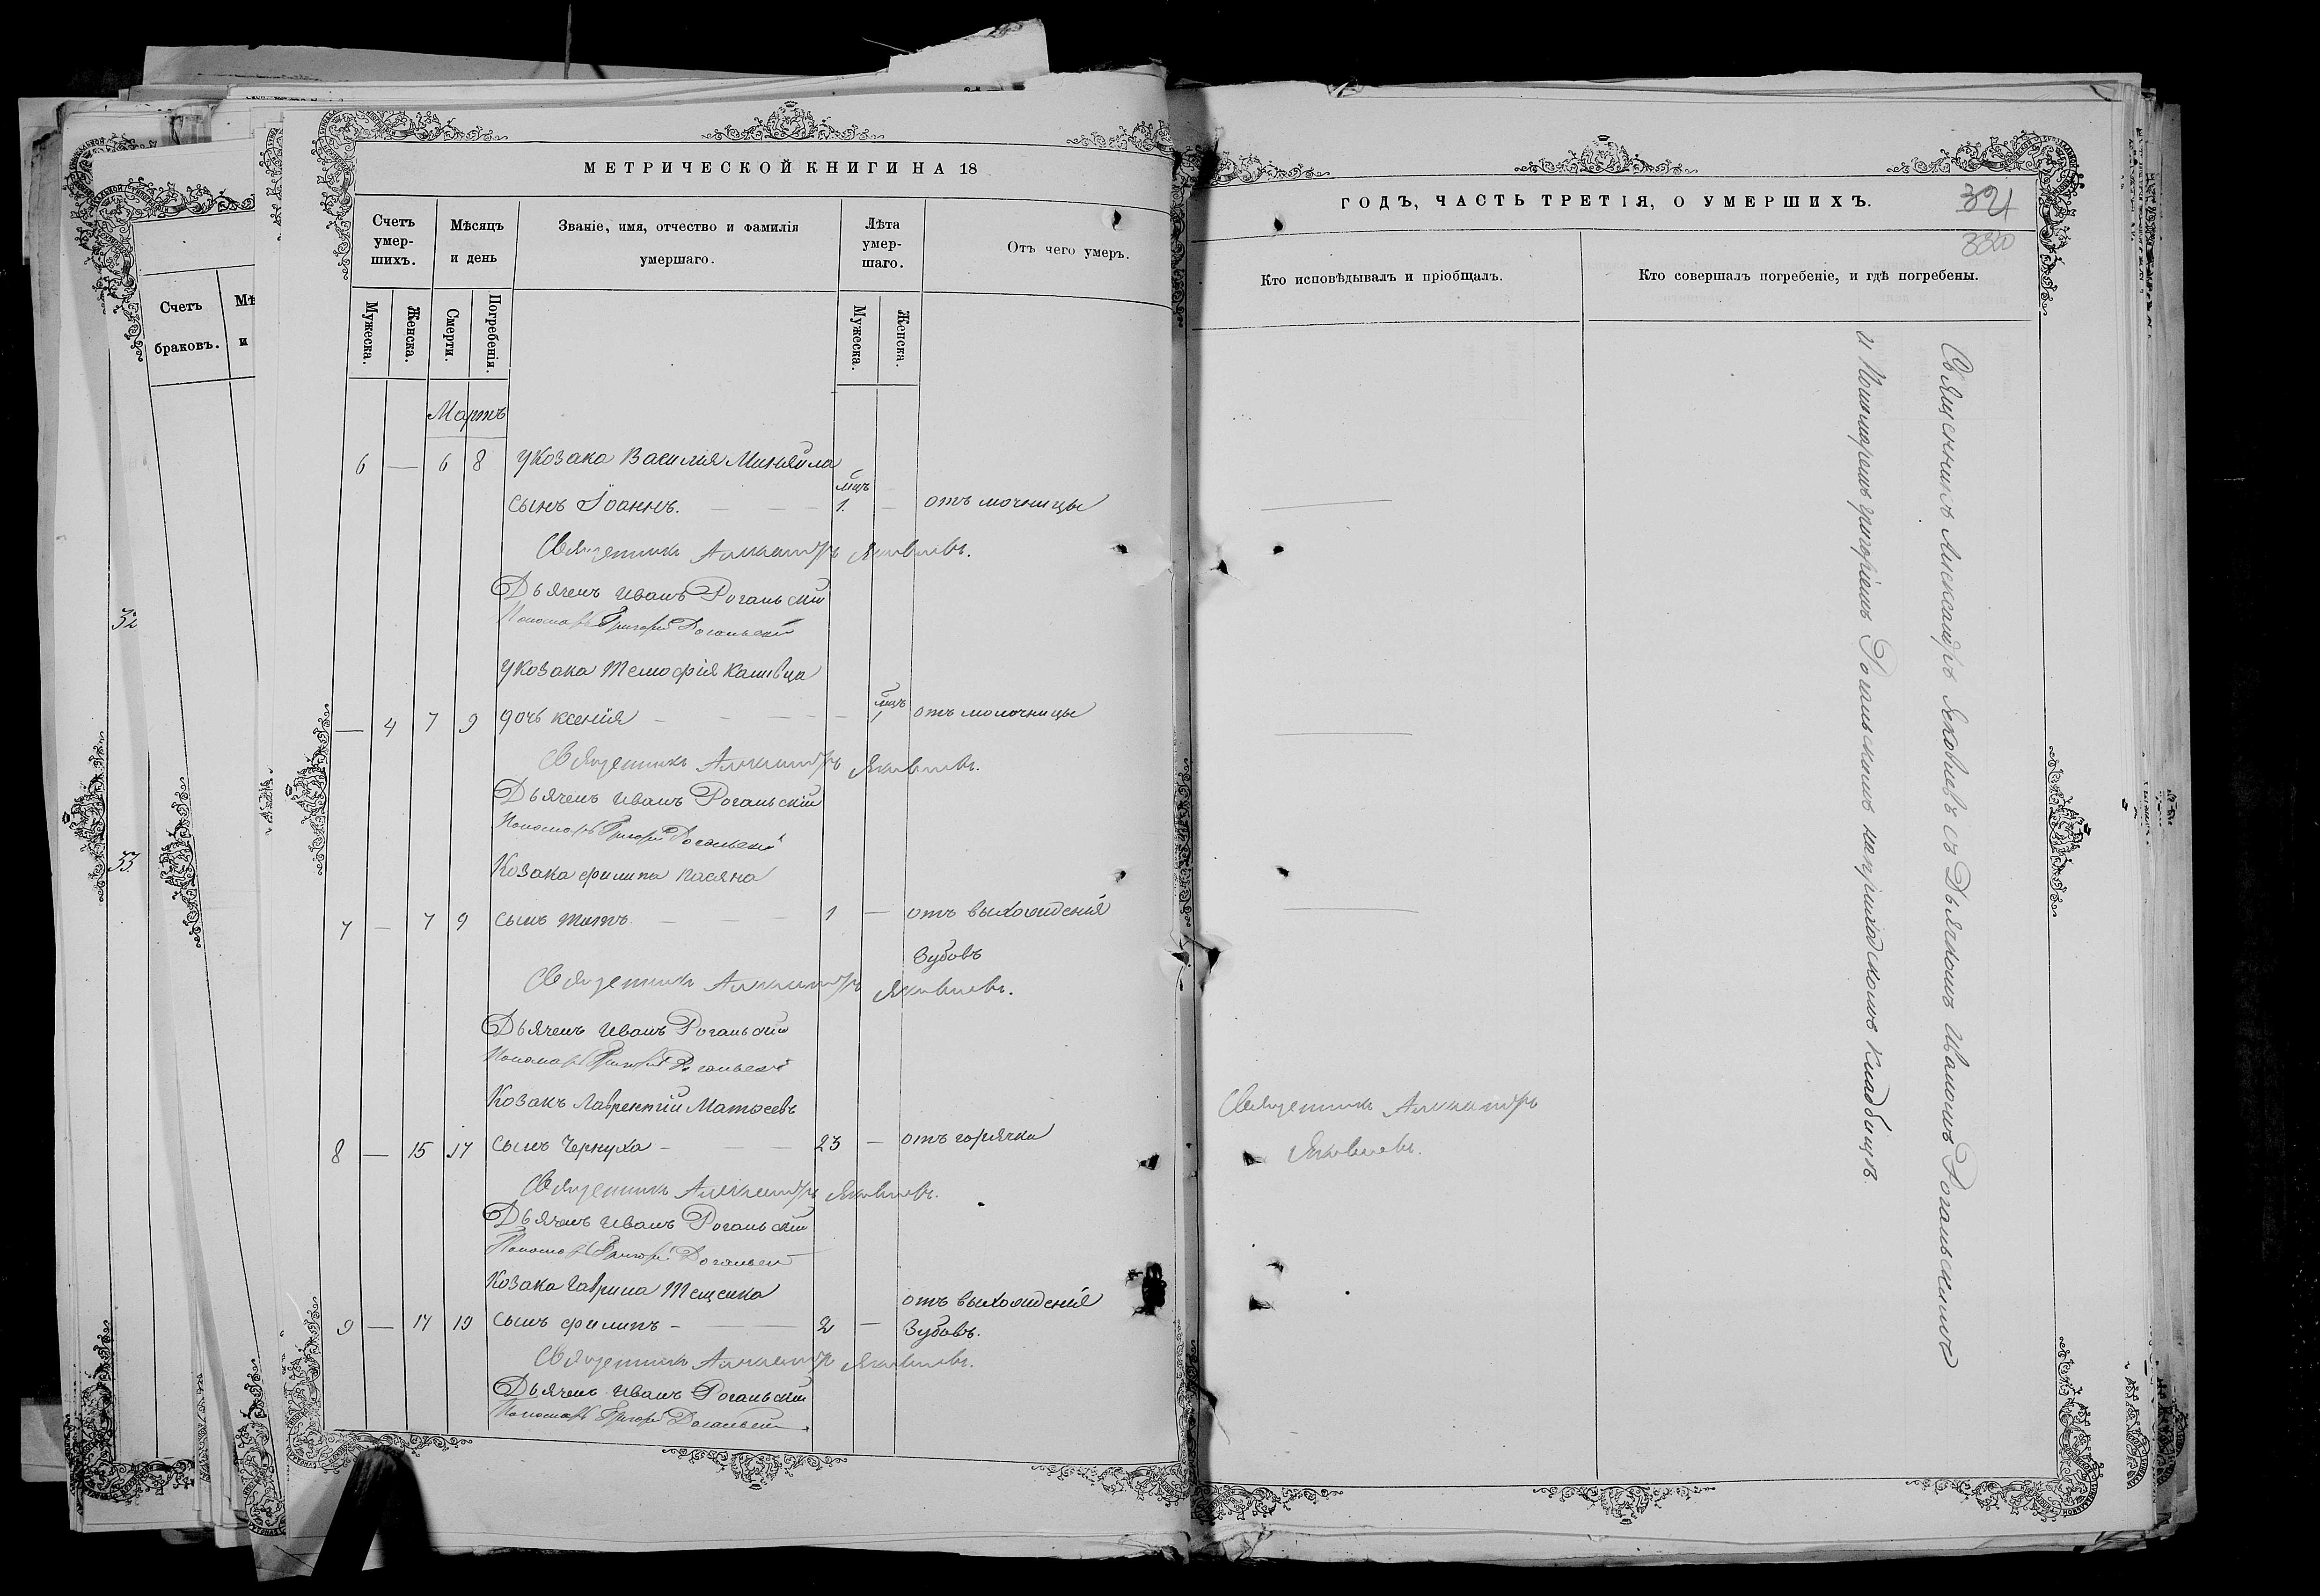 МЕТРИЧЕСКОЙ КНИГИ НА 18
ГОДЪ, ЧАСТЬ ТРЕТІЯ, О УМЕРШИХЪ.
321
320
Счетъ
браковъ.
Мѣ
и
32
33
Счетъ умер-шихъ.
Мѣсяцъ и день
Званіе, имя, отчество и фамилія умершаго.
Лѣта умер-шаго.
Отъ чего умеръ.
Кто исповѣдывалъ и пріобщалъ.
Кто совершалъ погребеніе, и гдѣ погребены.
Мужеска.
Женска.
Смерти.
Погребенія.
Мужеска.
Женска.
Мартъ
6 — 6 8 У Козака Василія Миняйла
сынъ Іоаннъ. — мцъ 1. — отъ мочницы
Священникъ Александръ Яковлевъ.
Дьячекъ Иванъ Рогальскій
Пономарь Григорій Рогальскій
У Козака Тимофія
— 4 7 9 дочь Ксенія — мцъ 1 отъ молочницы
Священникъ Александръ Яковлевъ.
Дьячекъ Иванъ Рогальскій
Пономарь Григорій Рогальскій
Козака Филипа Касяна
7 — 7 9 сынъ Титъ — 1 — отъ выхожденія
Зубовъ
Священникъ Александръ Яковлевъ.
Дьячекъ Иванъ Рогальскій
Пономарь Григорій Рогальскій
Козакъ Лаврентій Матосевъ
8 — 15 17 сынъ Чернуха — 23 — отъ горячки
Священникъ Александръ
Яковлевъ.
Священникъ Александръ Яковлевъ.
Дьячекъ Иванъ Рогальскій
Пономарь Григорій Рогальскій
Козака Гаврила
9 — 17 19 сынъ Филипъ — 2 — отъ выхожденія
Зубовъ.
Священникъ Александръ Яковлевъ.
Дьячекъ Иванъ Рогальскій
Пономарь Григорій Рогальскій
Священникъ Александръ Яковлевъ съ Дьячкомъ Иваномъ Рогальскимъ
и Пономаремъ Григоріемъ Рогальскимъ на приходскомъ кладбищѣ.